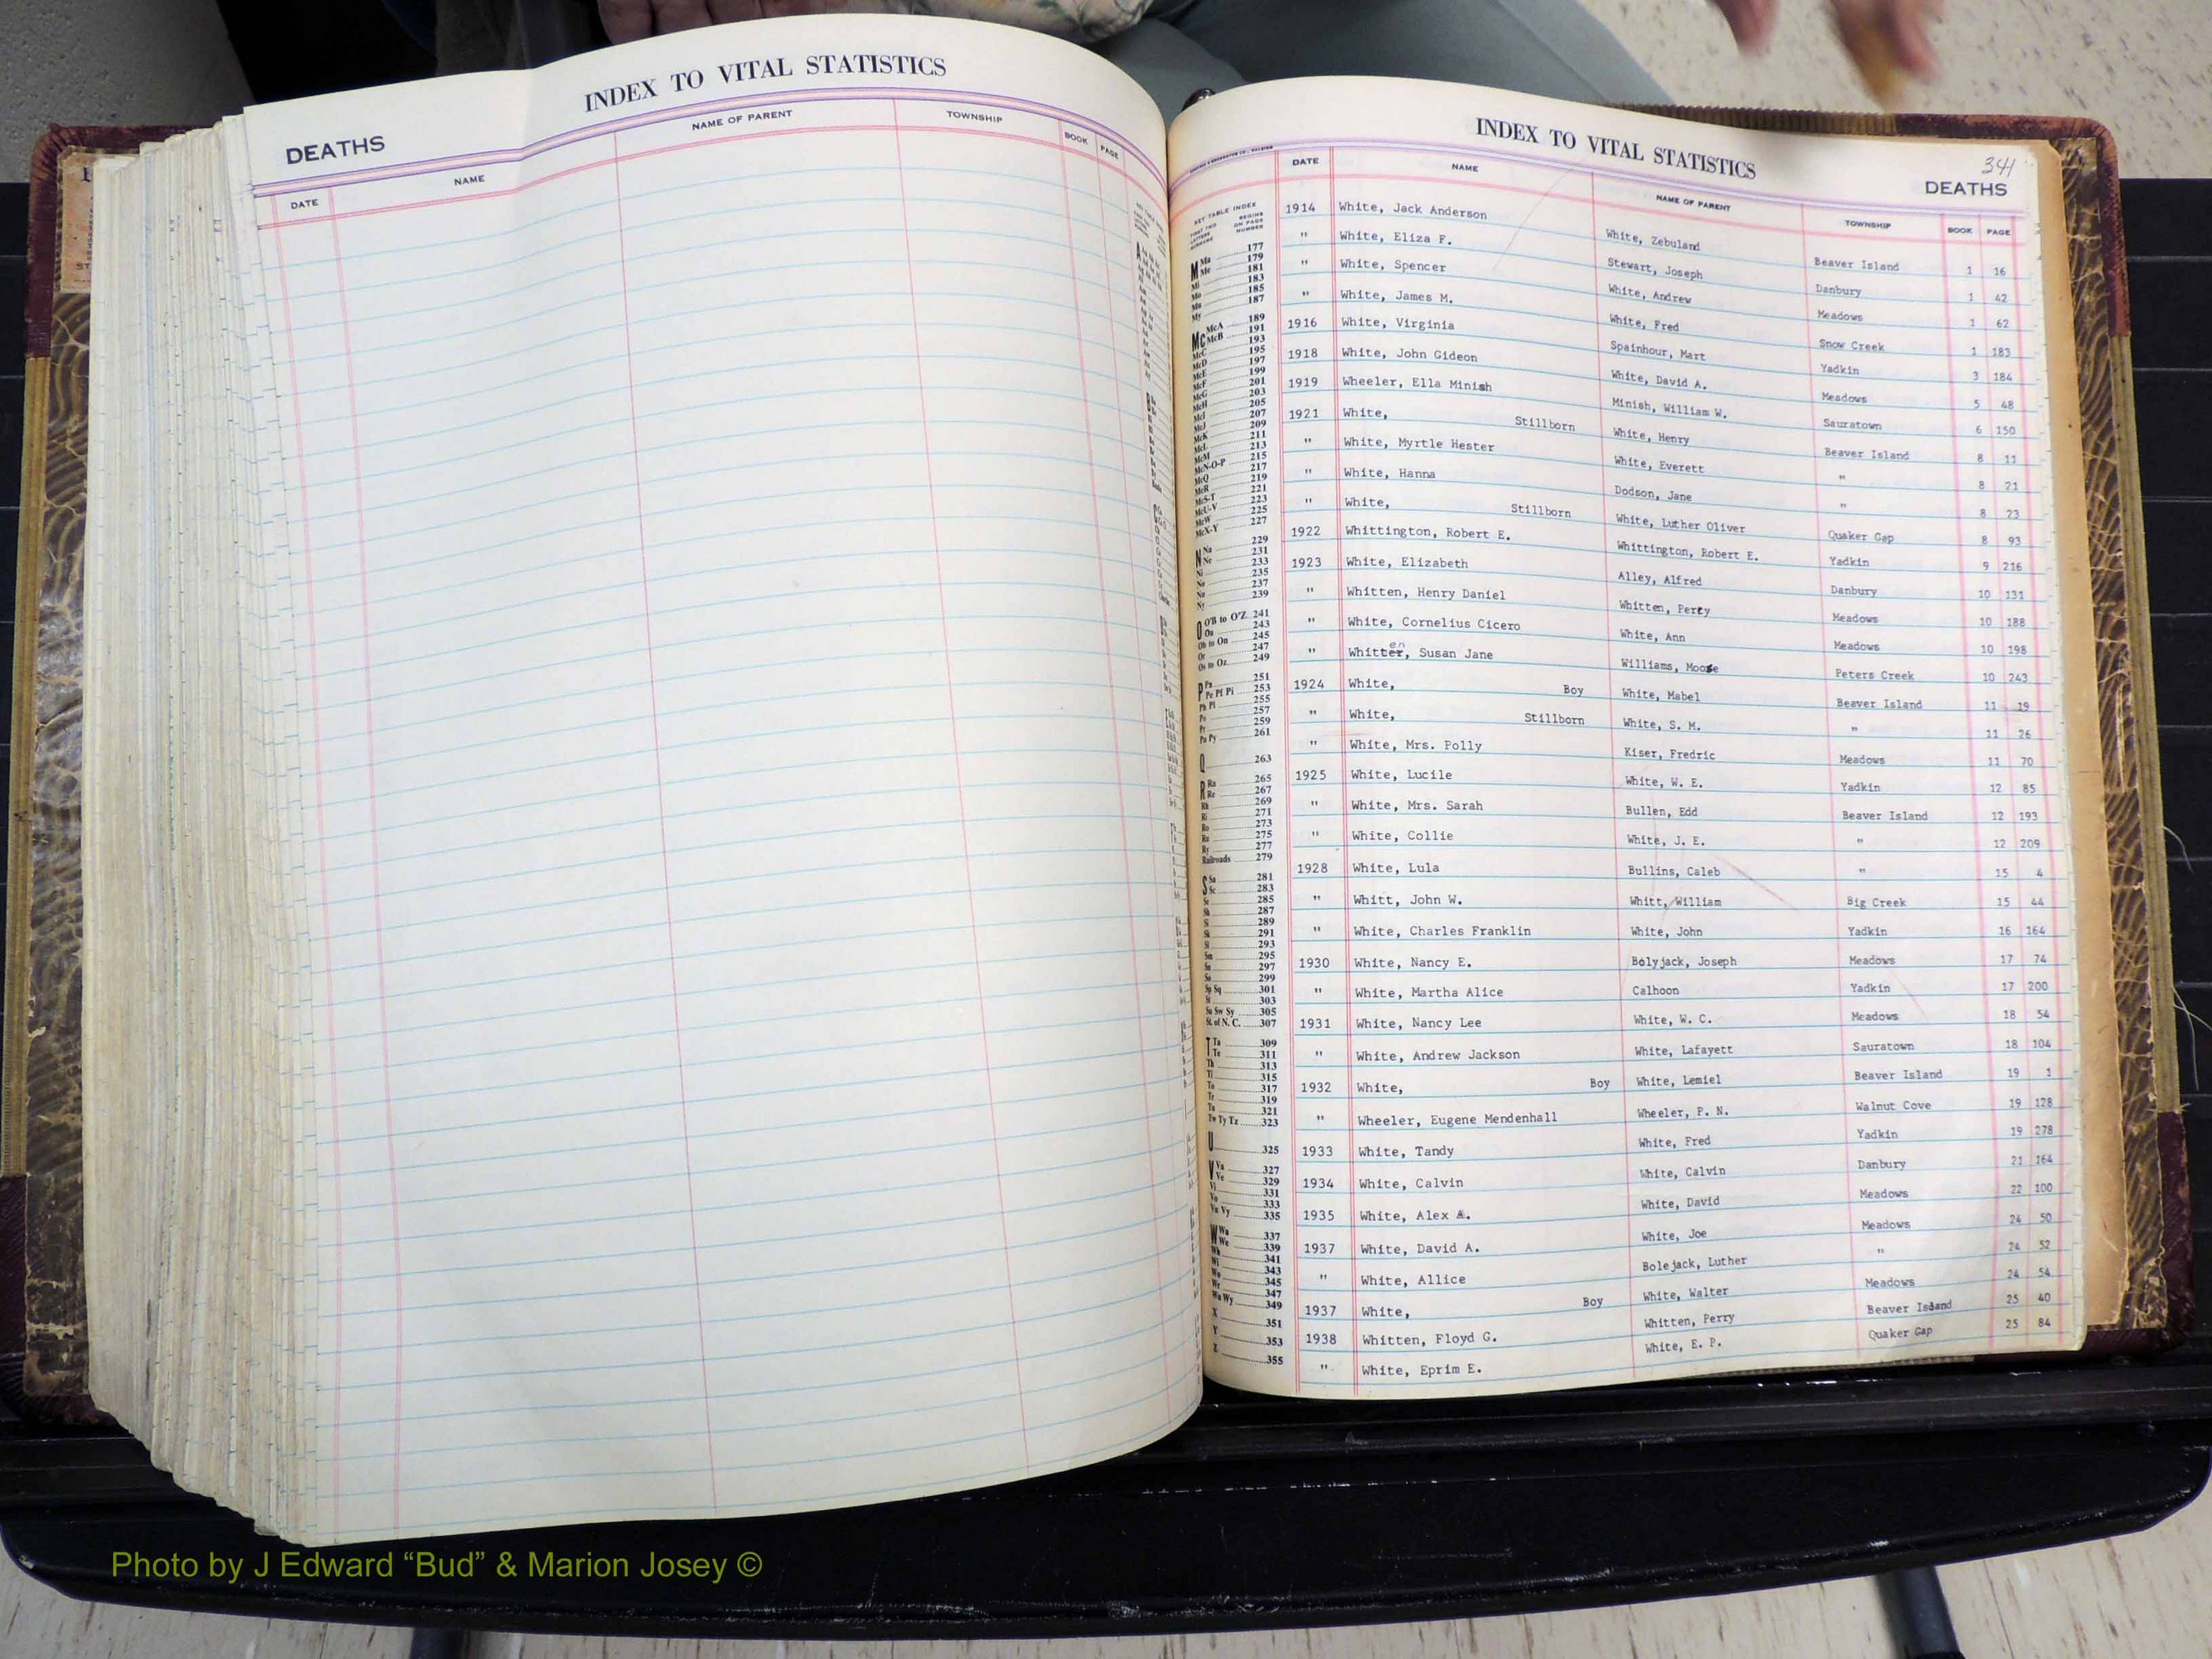 INDEX TO VITAL STATISTICS
DEATHS
DATE NAME NAME OF PARENT TOWNSHIP BOOK PAGE
INDEX TO VITAL STATISTICS
341
DEATHS
DATE NAME NAME OF PARENT TOWNSHIP BOOK PAGE
1914 White, Jack Anderson White, Zebuland Beaver Island 1 16
" White, Eliza F. Stewart, Joseph Danbury 1 42
" White, Spencer White, Andrew Meadows 1 62
" White, James M. White, Fred Snow Creek 1 183
1916 White, Virginia Spainhour, Mart Yadkin 3 184
1918 White, John Gideon White, David A. Meadows 5 48
1919 Wheeler, Ella Minish Minish, William W. Sauratown 6 150
1921 White, Stillborn White, Henry Beaver Island 8 11
" White, Myrtle Hester White, Everett " 8 21
" White, Hanna Dodson, Jane " 8 23
" White, Stillborn White, Luther Oliver Quaker Gap 8 93
1922 Whittington, Robert E. Whittington, Robert E. Yadkin 9 216
1923 White, Elizabeth Alley, Alfred Danbury 10 131
" Whitten, Henry Daniel Whitten, Percy Meadows 10 188
" White, Cornelius Cicero White, Ann Meadows 10 198
" Whitter, en Susan Jane Williams, Moose Peters Creek 10 243
1924 White, Boy White, Mabel Beaver Island 11 19
" White, Stillborn White, S. M. " 11 26
" White, Mrs. Polly Kiser, Fredric Meadows 11 70
1925 White, Lucile White, W. E. Yadkin 12 85
" White, Mrs. Sarah Bullen, Edd Beaver Island 12 193
" White, Collie White, J. E. " 12 209
1928 White, Lula Bullins, Caleb " 15 4
" Whitt, John W. Whitt, William Big Creek 15 44
" White, Charles Franklin White, John Yadkin 16 164
1930 White, Nancy E. Bolyjack, Joseph Meadows 17 74
" White, Martha Alice Calhoon Yadkin 17 200
1931 White, Nancy Lee White, W. C. Meadows 18 54
" White, Andrew Jackson White, Lafayett Sauratown 18 104
1932 White, Boy White, Lemiel Beaver Island 19 1
" Wheeler, Eugene Mendenhall Wheeler, P. N. Walnut Cove 19 128
1933 White, Tandy White, Fred Yadkin 19 278
1934 White, Calvin White, Calvin Danbury 21 164
1935 White, Alex A. White, David Meadows 22 100
1937 White, David A. White, Joe Meadows 24 50
" White, Allice Bolejack, Luther " 24 52
1937 White, Boy White, Walter Meadows 24 54
1938 Whitten, Floyd G. Whitten, Perry Beaver Island 25 40
" White, Eprim E. White, E. P. Quaker Gap 25 84
KEY TABLE INDEX
M Ma 177
Me 179
Mi 181
Mc McA 189
McB 191
McC 193
N Na 229
Ne 231
O O'B to O'Z 241
Oa 243
Ob to On 245
Or 247
Os to Oz 249
P Pa 251
Pe Pf Pi 253
Q 263
R Ra 265
Re 267
Railroads 279
S Sa 281
Sc 283
Sp Sq 301
St 303
Su Sw Sy 305
St. of N. C. 307
T Ta 309
Te 311
Th 313
Ti 315
To 317
Tr 319
Tu 321
Tw Ty Tz 323
U 325
V Va 327
Ve 329
Vi 331
Vo 333
Vu Vy 335
W Wa 337
We 339
Wh 341
Wi 343
Wo 345
Wr 347
Wu Wy 349
X 351
Y 353
Z 355
Photo by J Edward “Bud” & Marion Josey ©